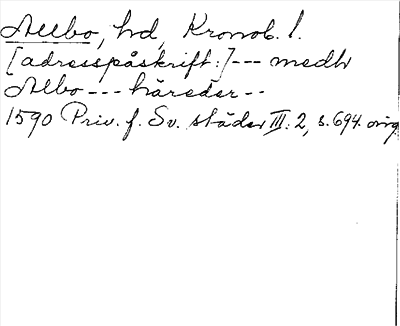 Allbo, hd, Kronob. l.
[adresspåskrift:]--- medh
Albo --- häreder --
1590 Priv. f. Sv. städer III:2, s.694. orig